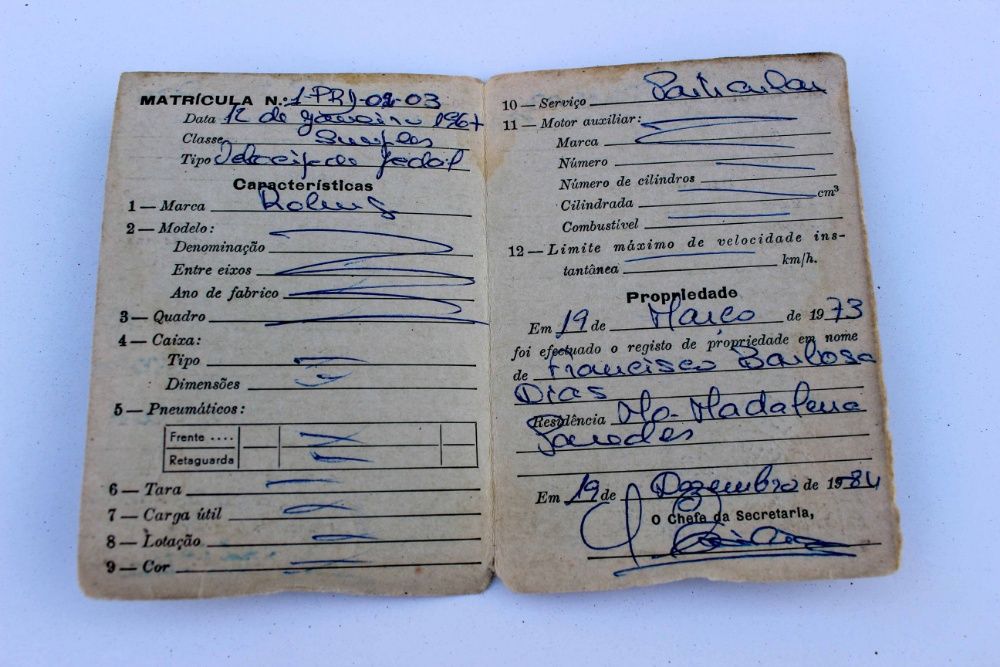 MATRÍCULA N.º 1-PRD-02-03
Data 12 de Janeiro 196
Classe Simples
Tipo Velocípede pedal
Características
1 — Marca
2 — Modelo:
Denominação
Entre eixos
Ano de fabrico
3 — Quadro
4 — Caixa:
Tipo
Dimensões
5 — Pneumáticos:
Frente ....
Retaguarda
6 — Tara
7 — Carga útil
8 — Lotação
9 — Cor
10 — Serviço Particular
11 — Motor auxiliar:
Marca
Número
Número de cilindros
Cilindrada cm³
Combustível
12 — Limite máximo de velocidade ins-
tantânea km/h.
Propriedade
Em 19 de Março de 1973
foi efectuado o registo de propriedade em nome
de Francisco Barbosa
Dias
Residência Madalena
Paredes
Em 19 de Dezembro de 1984
O Chefe da Secretaria,